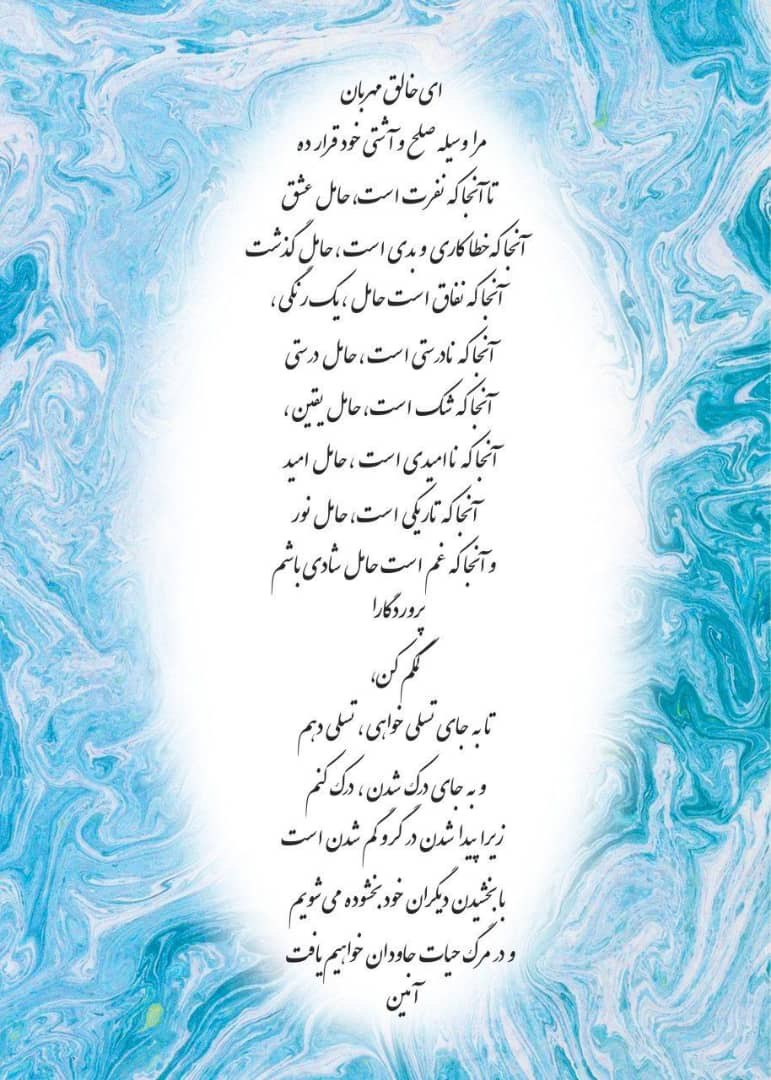 ای خالق مهربان
مرا وسیله صلح و آشتی خود قرار ده
تا آنجا که نفرت است، حامل عشق
آنجا که خطا کاری و بدی است، حامل گذشت
آنجا که نفاق است حامل ، یک رنگی ،
آنجا که نادرستی است، حامل درستی
آنجا که شک است، حامل یقین ،
آنجا که ناامیدی است ، حامل امید
آنجا که تاریکی است، حامل نور
و آنجا که غم است حامل شادی باشم
پروردگارا
کمکم کن،
تا به جای تسلی خواهی ، تسلی دهم
و به جای درک شدن ، درک کنم
زیرا پیدا شدن در گرو گم شدن است
با بخشیدن دیگران خود بخشوده می شویم
و در مرگ حیات جاودان خواهیم یافت
آمین